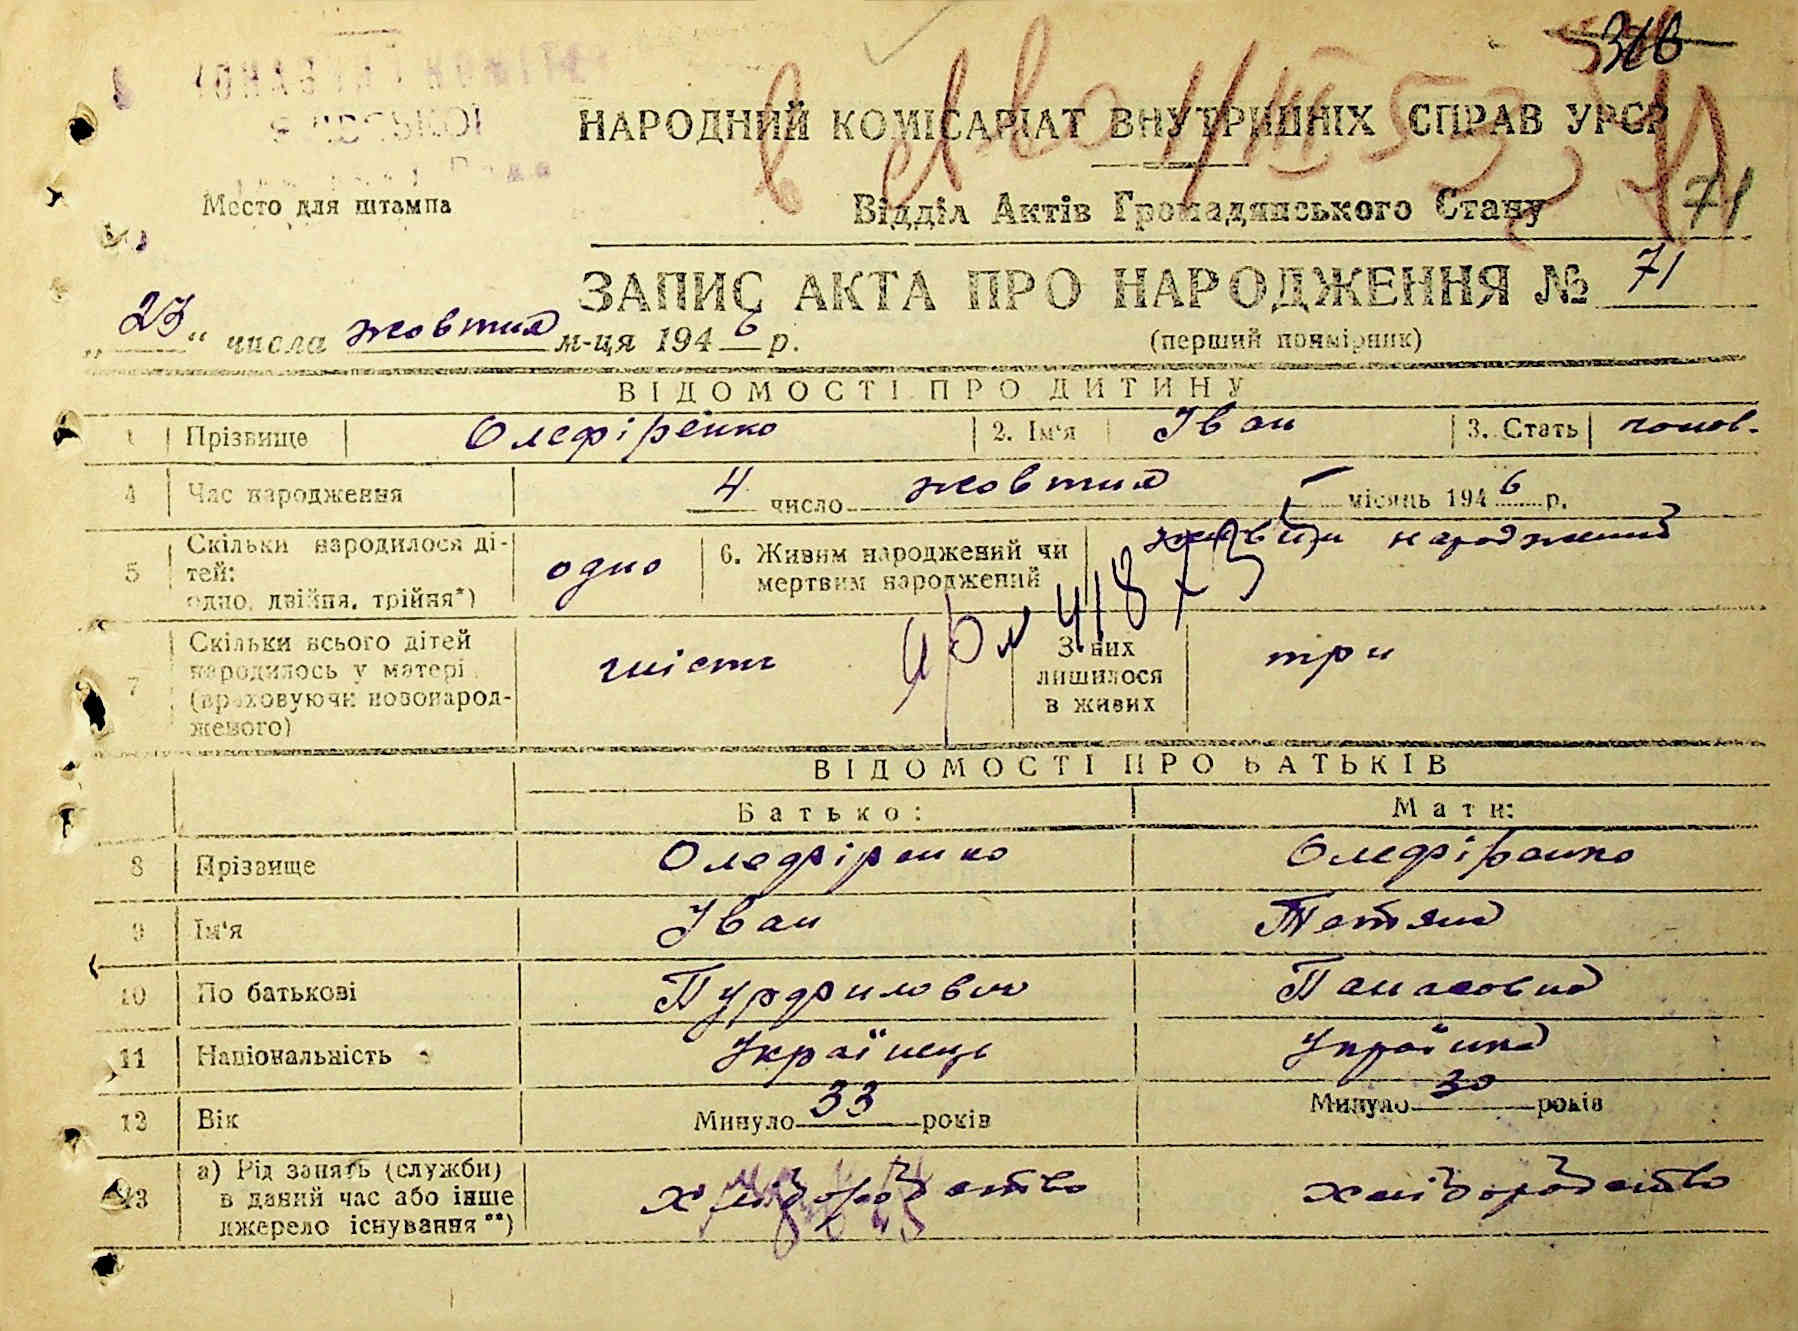 316
НАРОДНИЙ КОМІСАРІАТ ВНУТРИШНІХ СПРАВ УРСР
Место для штампа
Відділ Актів Громадянського Стану
71
ЗАПИС АКТА ПРО НАРОДЖЕННЯ № 71
„23“ числа жовтня м-ця 1946 р.
(перший примірник)
ВІДОМОСТІ ПРО ДИТИНУ
1 Прізвище Олефіренко 2. Ім'я Іван 3. Стать чолов.
4 Час народження 4 число жовтня місяць 1946 р.
5 Скільки народилося ді-
тей:
одно, двійня, трійня*) одно 6. Живим народжений чи
мертвим народжений живим народжений
7 Скільки всього дітей
народилось у матері
(враховуючи новонарод-
женого) шість З них
лишилося
в живих три
ВІДОМОСТІ ПРО БАТЬКІВ
Батько: Мати:
8 Прізвище Олефіренко Олефіренко
9 Ім'я Іван Тетяна
10 По батькові Панасовна
11 Національність Українець Українка
12 Вік Минуло 33 років Минуло 30 років
13 а) Рід занять (служби)
в даний час або інше
джерело існування**) хліборобство хліборобство